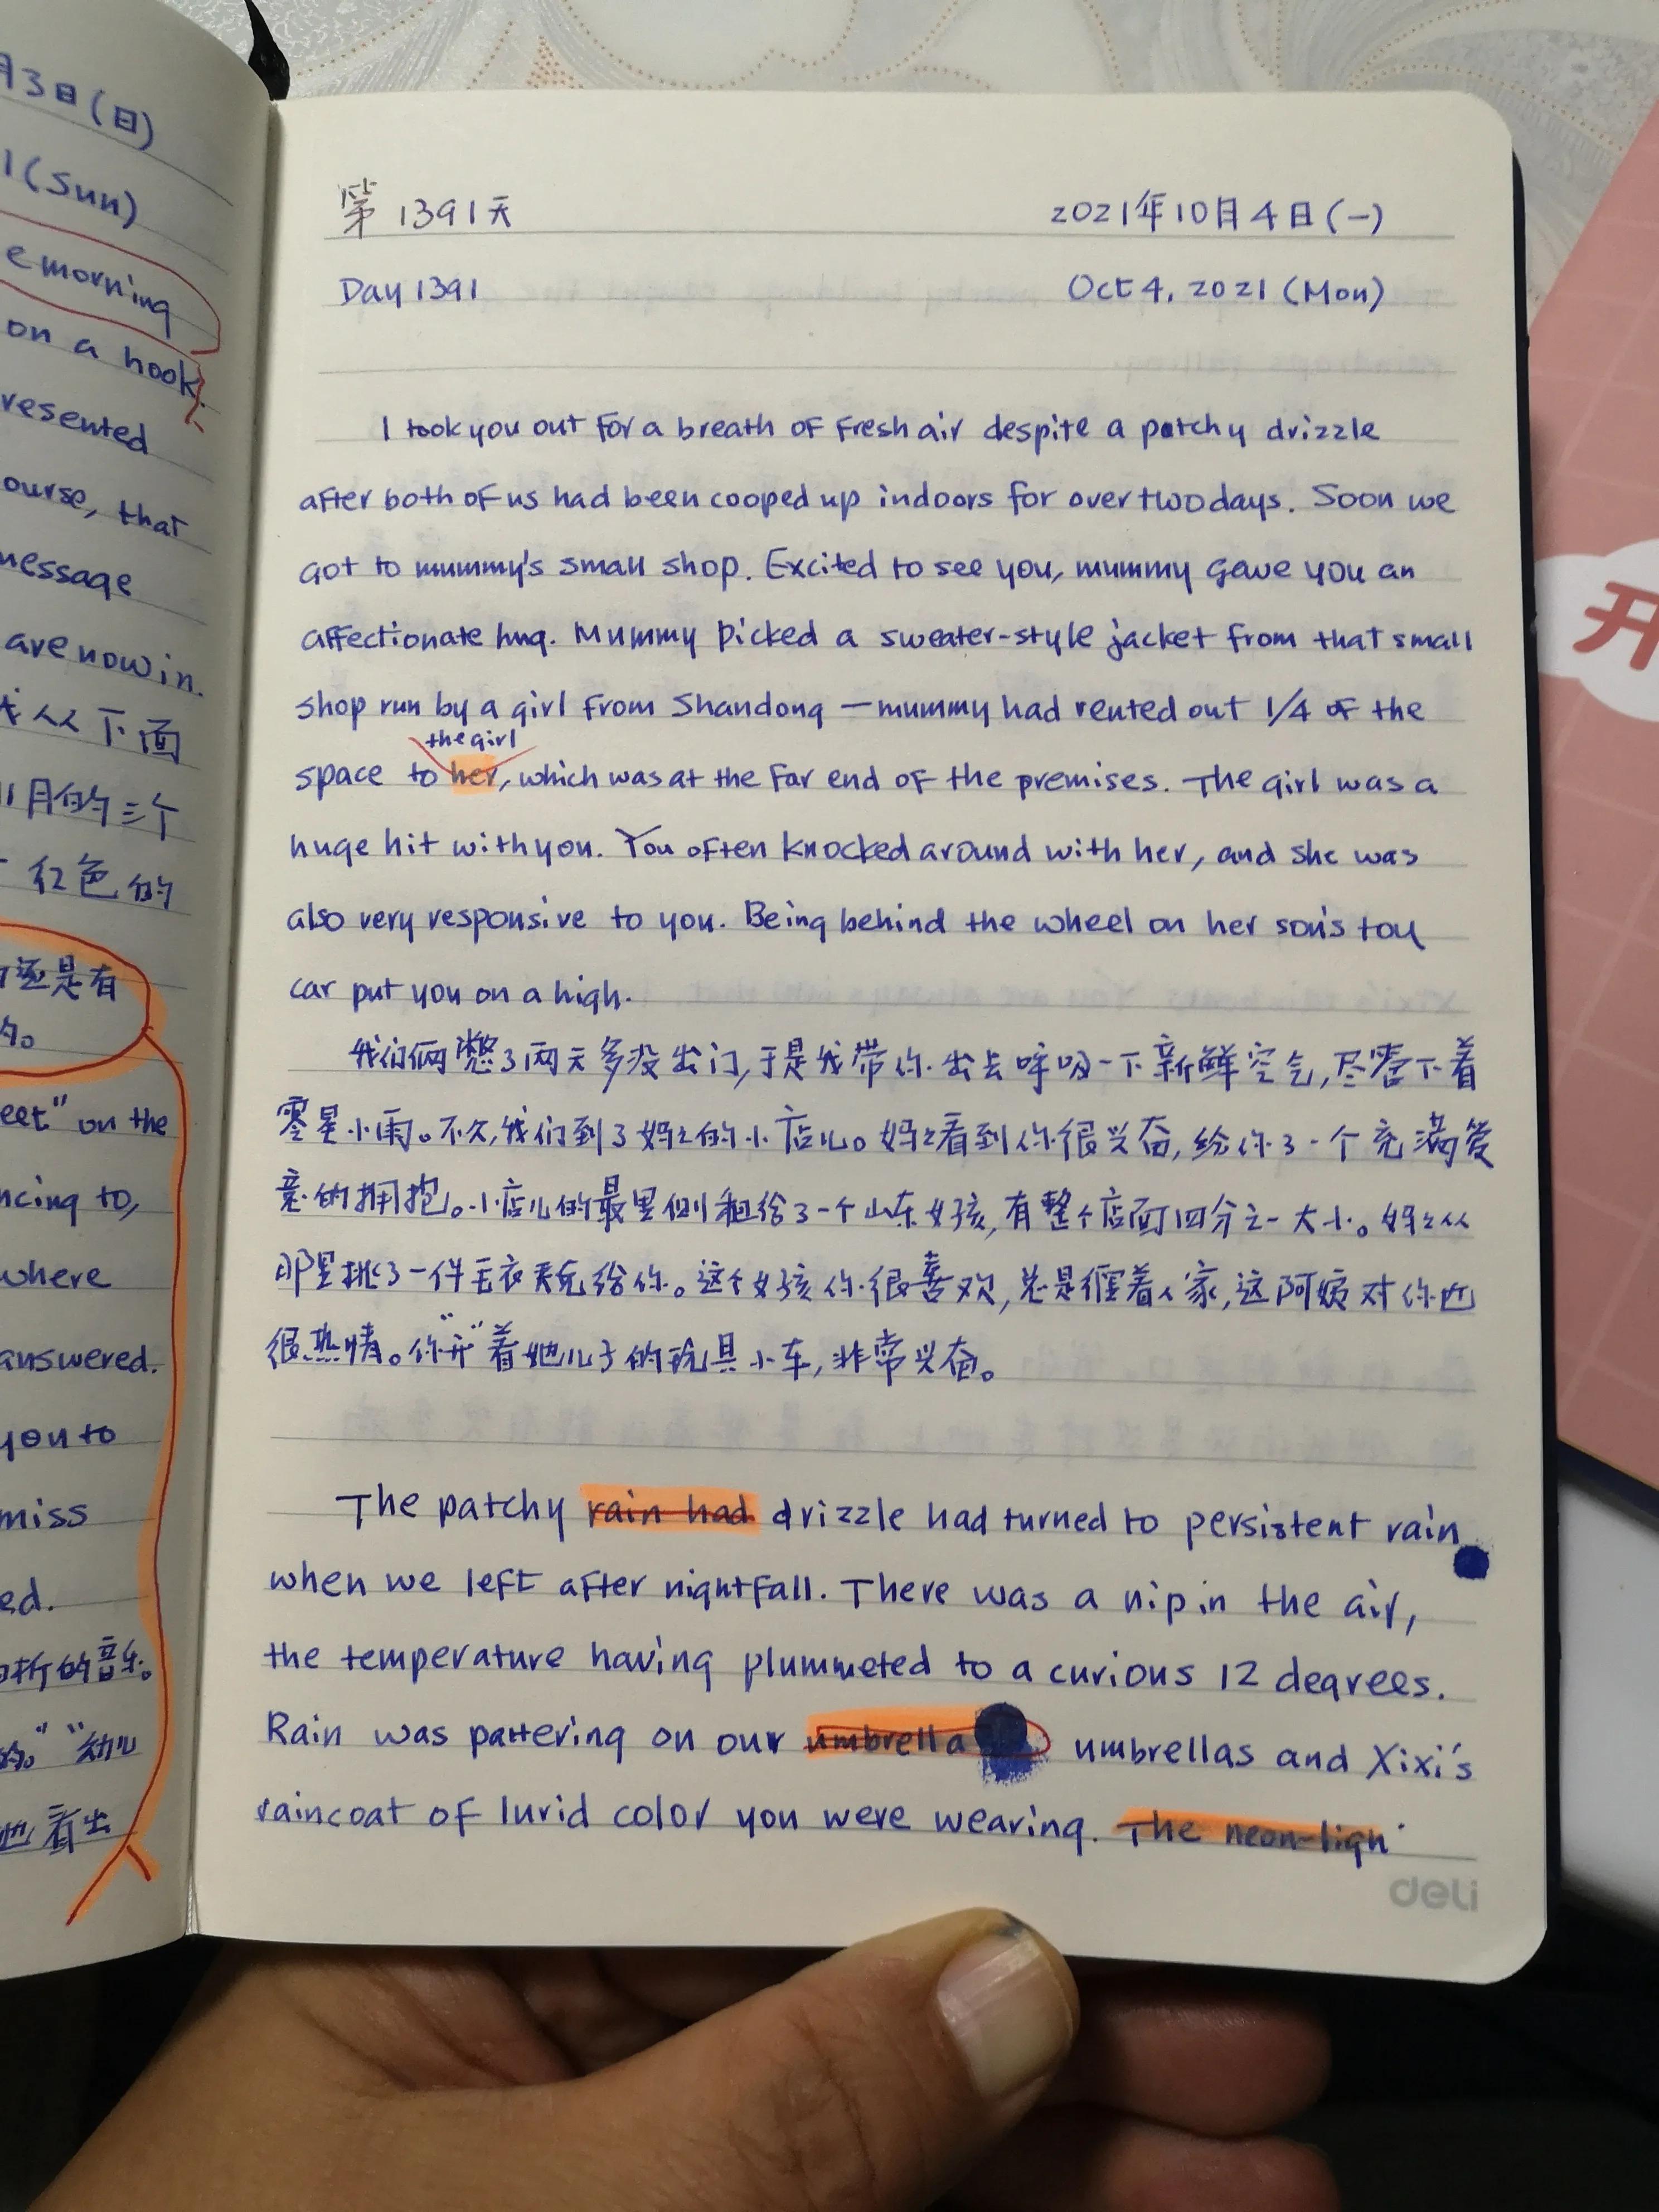 月3日(日)
1(Sun)
e morning
on a hook.
resented
ourse, that
message
are now in.
从下面
11月的三个
红色的
还是有
的。
eet" on the
ncing to,
where
answered.
you to
miss
ed.
析的音乐。
的。" "幼儿
她看出
第1391天 2021年10月4日(一)
Day 1391 Oct 4, 2021 (Mon)
I took you out for a breath of fresh air despite a patchy drizzle
after both of us had been cooped up indoors for over two days. Soon we
got to mummy's small shop. Excited to see you, mummy gave you an
affectionate hug. Mummy picked a sweater-style jacket from that small
shop run by a girl from Shandong — mummy had rented out 1/4 of the
the girl
space to her, which was at the far end of the premises. The girl was a
huge hit with you. You often knocked around with her, and she was
also very responsive to you. Being behind the wheel on her son's toy
car put you on a high.
我们俩憋了两天多没出门,于是我带你出去呼吸一下新鲜空气,尽管下着
零星小雨。不久,我们到了妈妈的小店儿。妈妈看到你很兴奋,给你了一个充满爱
意的拥抱。小店儿的最里侧租给了一个山东女孩,有整个店面四分之一大小。妈妈从
那里挑了一件毛衣夹克给你。这个女孩你很喜欢,总是缠着人家,这阿姨对你也
很热情。你"开"着她儿子的玩具小车,非常兴奋。
The patchy rain had drizzle had turned to persistent rain
when we left after nightfall. There was a nip in the air,
the temperature having plummeted to a curious 12 degrees.
Rain was pattering on our umbrella umbrellas and Xixi's
raincoat of lurid color you were wearing. The neon-ligh
deli
开